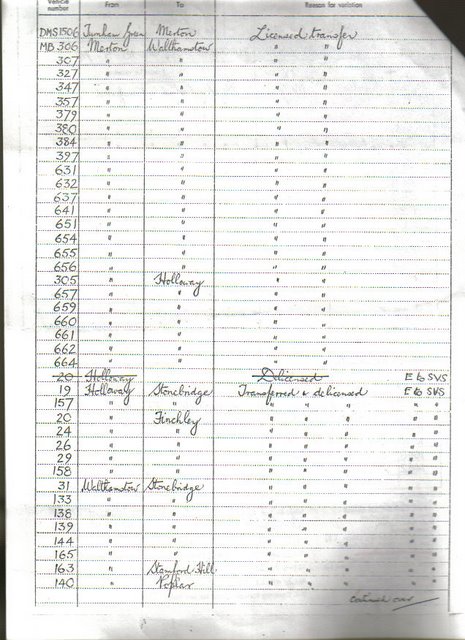 Vehicle number From To Reason for variation
DMS1506 Turnham Green Merton Licensed transfer
MB 306 Merton Walthamstow " "
307 " " " "
327 " " " "
347 " " " "
357 " " " "
379 " " " "
380 " " " "
384 " " " "
397 " " " "
631 " " " "
632 " " " "
637 " " " "
641 " " " "
651 " " " "
654 " " " "
655 " " " "
656 " " " "
305 " Holloway " "
657 " " " "
659 " " " "
660 " " " "
661 " " " "
662 " " " "
664 " " " "
20 Holloway Delicensed E to SVS
19 Holloway Stonebridge Transferred & delicensed E to SVS
157 " " " " " " "
20 " Finchley " " " " "
24 " " " " " " "
26 " " " " " " "
29 " " " " " " "
158 " " " " " " "
31 Walthamstow Stonebridge " " " " "
133 " " " " " " "
138 " " " " " " "
139 " " " " " " "
144 " " " " " " "
165 " " " " " " "
163 " Stamford Hill " " " " "
140 " Poplar " " " " "